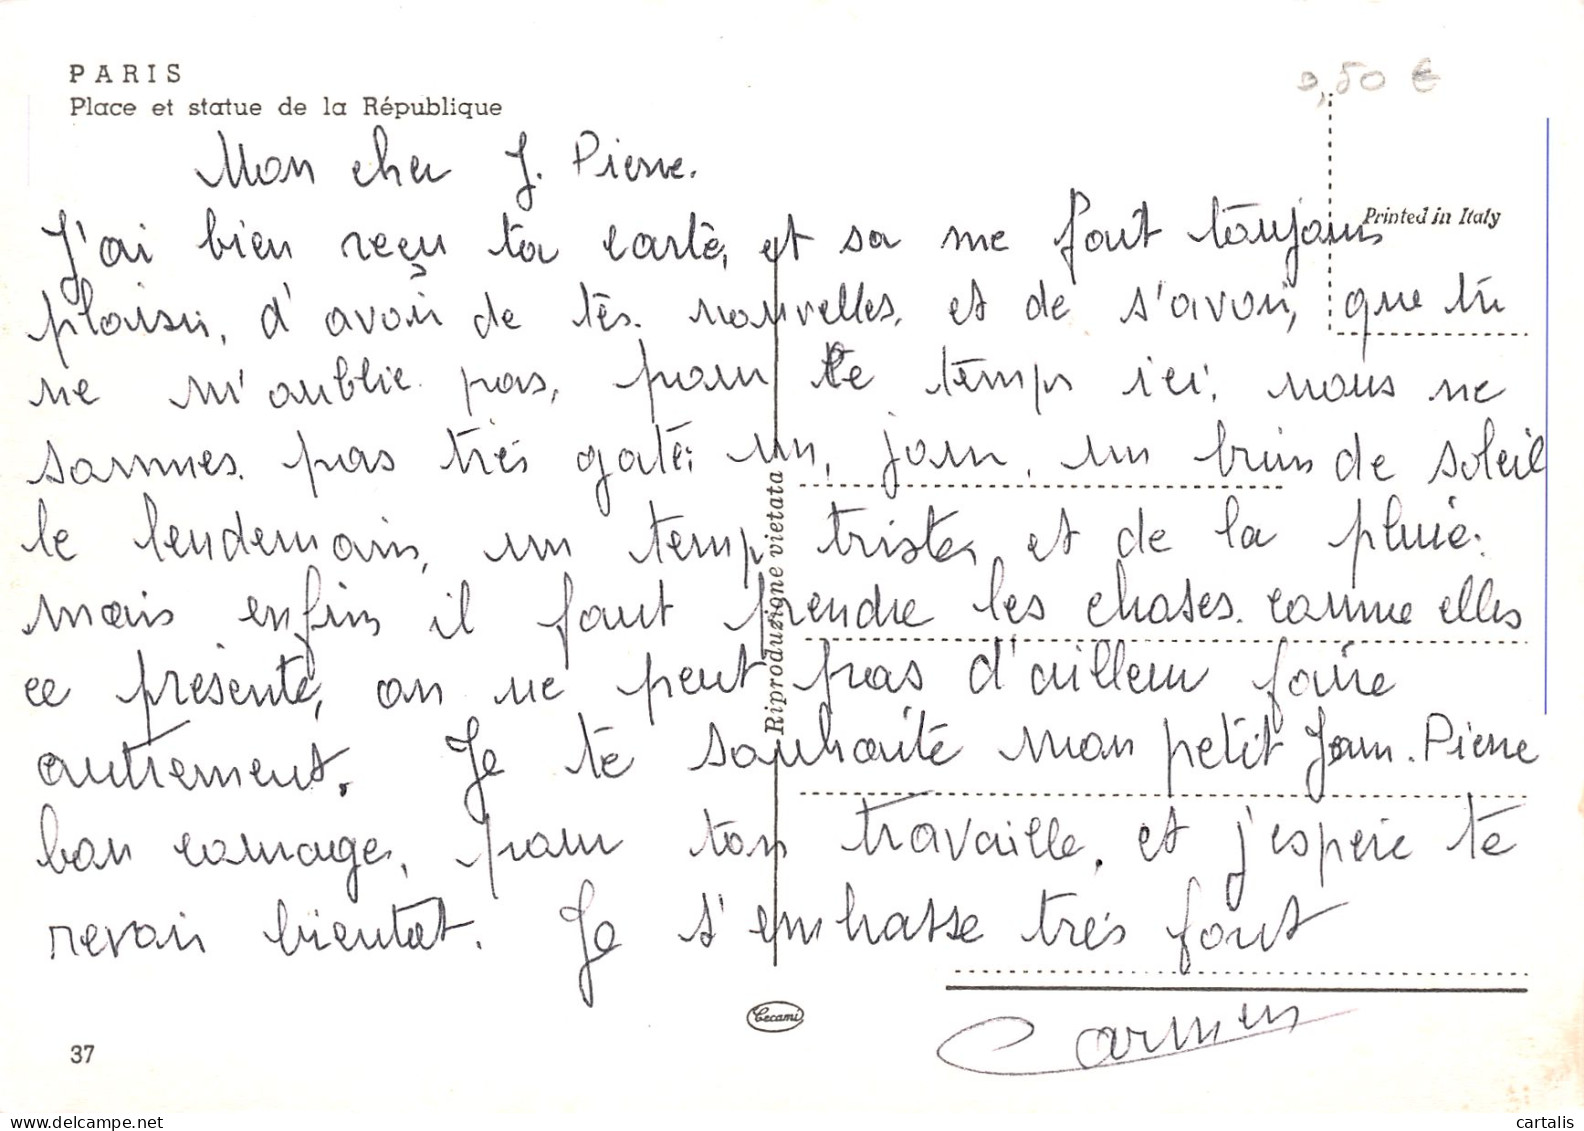 PARIS
Place et statue de la République
9,50 €
Printed in Italy
Mon cher J. Pierre.
J'ai bien reçu ta carte, et sa me fait toujours
plaisir, d'avoir de tes nouvelles, et de s'avoir, que tu
ne m'oublie pas, pour le temps ici, nous ne
sommes pas très gaté; un jour, un brins de soleil
le lendemain, un temp tristes et de la pluie.
mais enfin il faut prendre les choses comme elles
ce présente, on ne peut pas d'ailleur faire
autrement. Je te souhaite mon petit Jean. Pierre
bon courage, pour ton travaille, et j'espère te
revoir bientôt. Je t'embrasse très fort
Carmen
Riproduzione vietata
Cecami
37
delcampe.net
cartalis